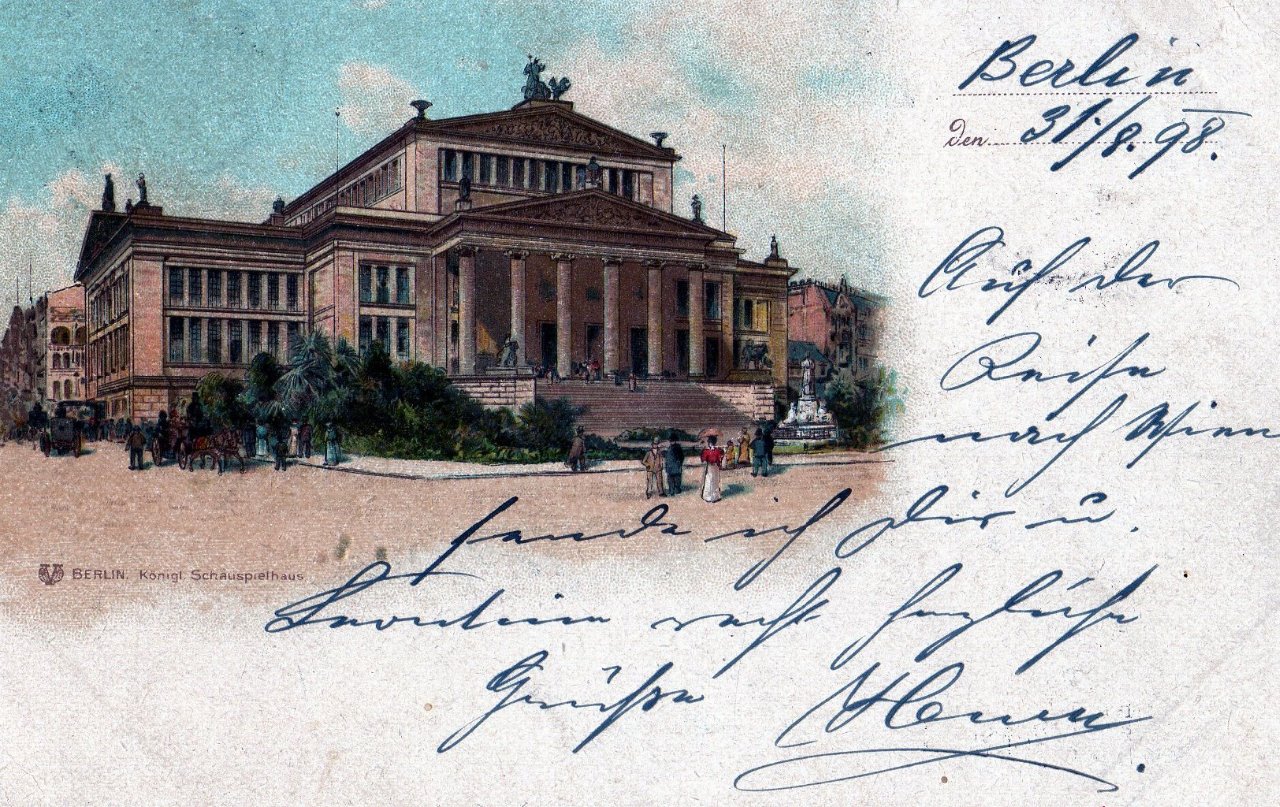 Berlin
den 31./8. 98.
Auf der
Reise
nach Wien
sende ich Dir u.
recht herzliche
Grüße
BERLIN. Königl. Schauspielhaus